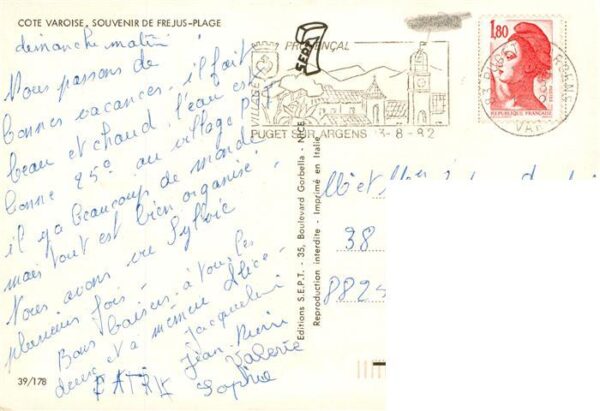 COTE VAROISE, SOUVENIR DE FREJUS-PLAGE
dimanche matin
Nous passons de
bonnes vacances, il fait
beau et chaud, l'eau est
bonne 25° au village
il y a beaucoup de monde
mais tout est bien organisé.
Nous avons vu Sylvie
plusieurs fois.
Bons baisers à tous les
deux et a mémère Alice.
Jacqueline
Jean-Pierre
Valérie
Sophie
39/178
SEPT
Editions S.E.P.T. - 35, Boulevard Gorbella - NICE
Reproduction interdite - Imprimé en Italie
VILLAGE
PROVENÇAL
PUGET SUR ARGENS 3-8-82
1,80
REPUBLIQUE FRANCAISE
VAR
38